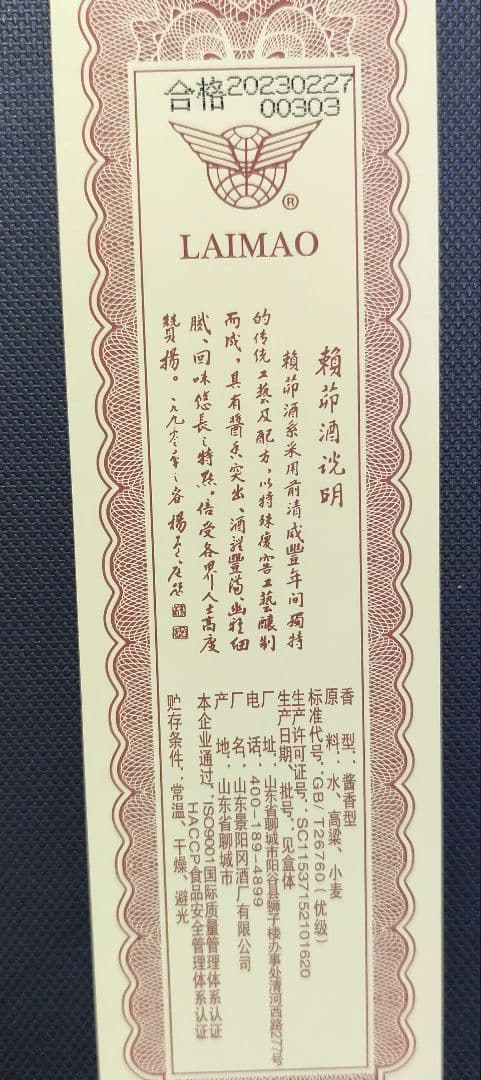 合格20230227
00303
®
LAIMAO
賴茆酒说明
賴茆酒系采用前清咸豐年间獨特
的传统工藝及配方，以特殊復窖工藝釀制
而成，具有醬香突出、酒體豐满、幽雅细
腻、回味悠長之特點，倍受各界人士高度
贊揚。一九九〇年之谷
香 型：酱香型
原 料：水、高粱、小麦
标准代号：GB/T26760（优级）
生产许可证号：SC11537152101620
生产日期、批号：见盒体
厂 址：山东省聊城市阳谷县狮子楼办事处清河西路277号
电 话：400-189-4899
厂 名：山东景阳冈酒厂有限公司
产 地：山东省聊城市
本企业通过：ISO9001国际质量管理体系认证
HACCP食品安全管理体系认证
贮存条件：常温、干燥、避光